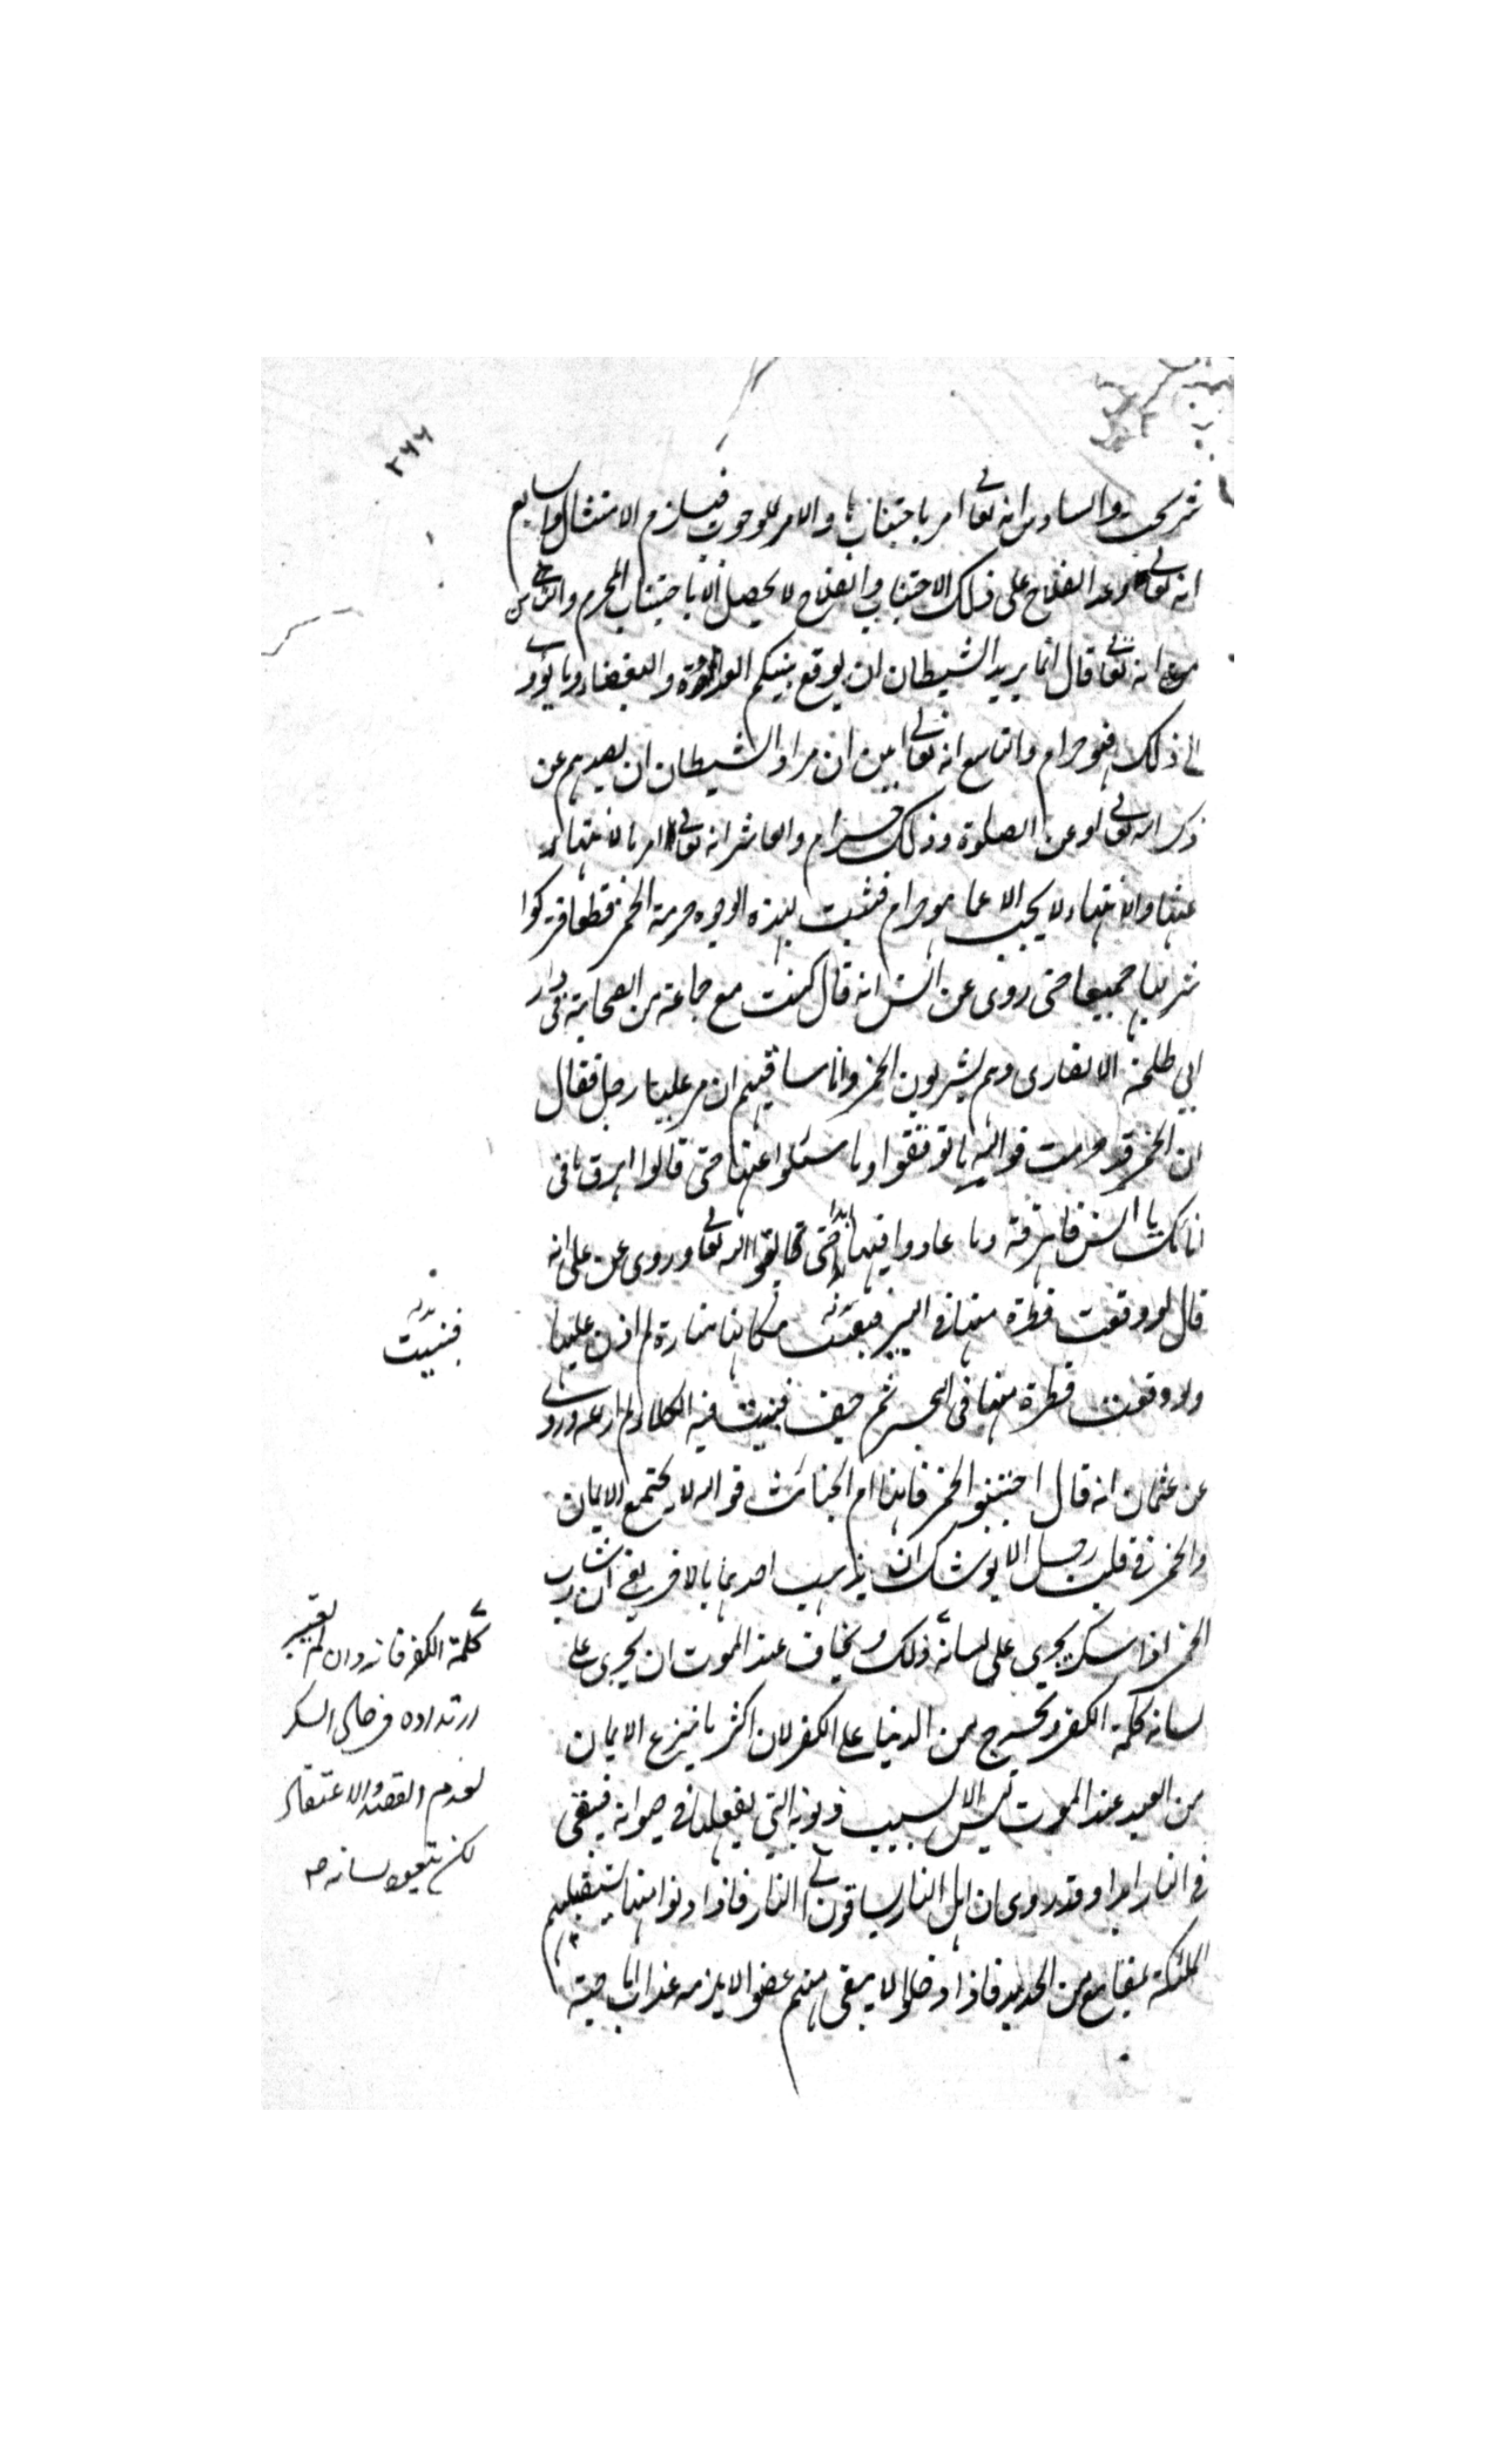 ٢٦٦
والسادس انه تعالى امر باجتنابها والامر للوجوب فيلزم الامتثال والسابع
انه تعالى وعد الفلاح على ذلك الاجتناب والفلاح لا يحصل الا باجتناب المحرم والثامن
انه تعالى قال انما يريد الشيطان ان يوقع بينكم العداوة والبغضاء وما يؤدى
الى ذلك فهو حرام والتاسع انه تعالى بين ان مراد الشيطان ان يصدهم عن
ذكر الله تعالى او عن الصلوة وذلك حرام والعاشر انه تعالى امر بالانتهاء
عنها والانتهاء لا يجب الا عما هو حرام فثبت بهذه الوجوه حرمة الخمر قطعا فتركوا
شربها جميعا حتى روى عن انس انه قال كنت مع جماعة من الصحابة فى دار
ابي طلحة الانصارى وهم يشربون الخمر وانا ساقيهم ان مر علينا رجل فقال
ان الخمر قد حرمت فوالله ما توقفوا وما سئلوا عنها حتى قالوا اهرق ما فى
انائك يا انس فاهرقته وما عادوا فيها ابدا حتى لقوا الله تعالى وروى عن على انه
قال لو وقعت قطرة منها فى البير فبنيت مكانها منارة لم اذن عليها
ولو وقعت قطرة منها فى البحر ثم جف فنبت فيه الكلاء لم ارعه وروى
عن عثمان انه قال اجتنبوا الخمر فانها ام الخبائث فوالله لا يجتمع الايمان
والخمر فى قلب رجل الا يوشك ان يذهب احدهما بالاخر يعنى ان شارب
الخمر اذا سكر يجرى على لسانه ذلك ويخاف عند الموت ان يجرى على
لسانه كلمة الكفر ويخرج من الدنيا على الكفر لان اكثر ما ينزع الايمان
من العبد عند الموت ليس الا بسبب ذنوبه التي يفعلها فى حيوته فيبقى
فى النار ابدا وقد روى ان اهل النار يساقون الى النار فاذا دنوا منها يستقبلهم
الملئكة بمقامع من الحديد فاذا دخلوا لا يبقى منهم عضو الا يلزمه عذاب اما حية
فبنيت
كلمة الكفر فانه وان لم يعتبر
ارتداده فى حال السكر
لعدم القصد والاعتقاد
لكن يتعود لسانه صح